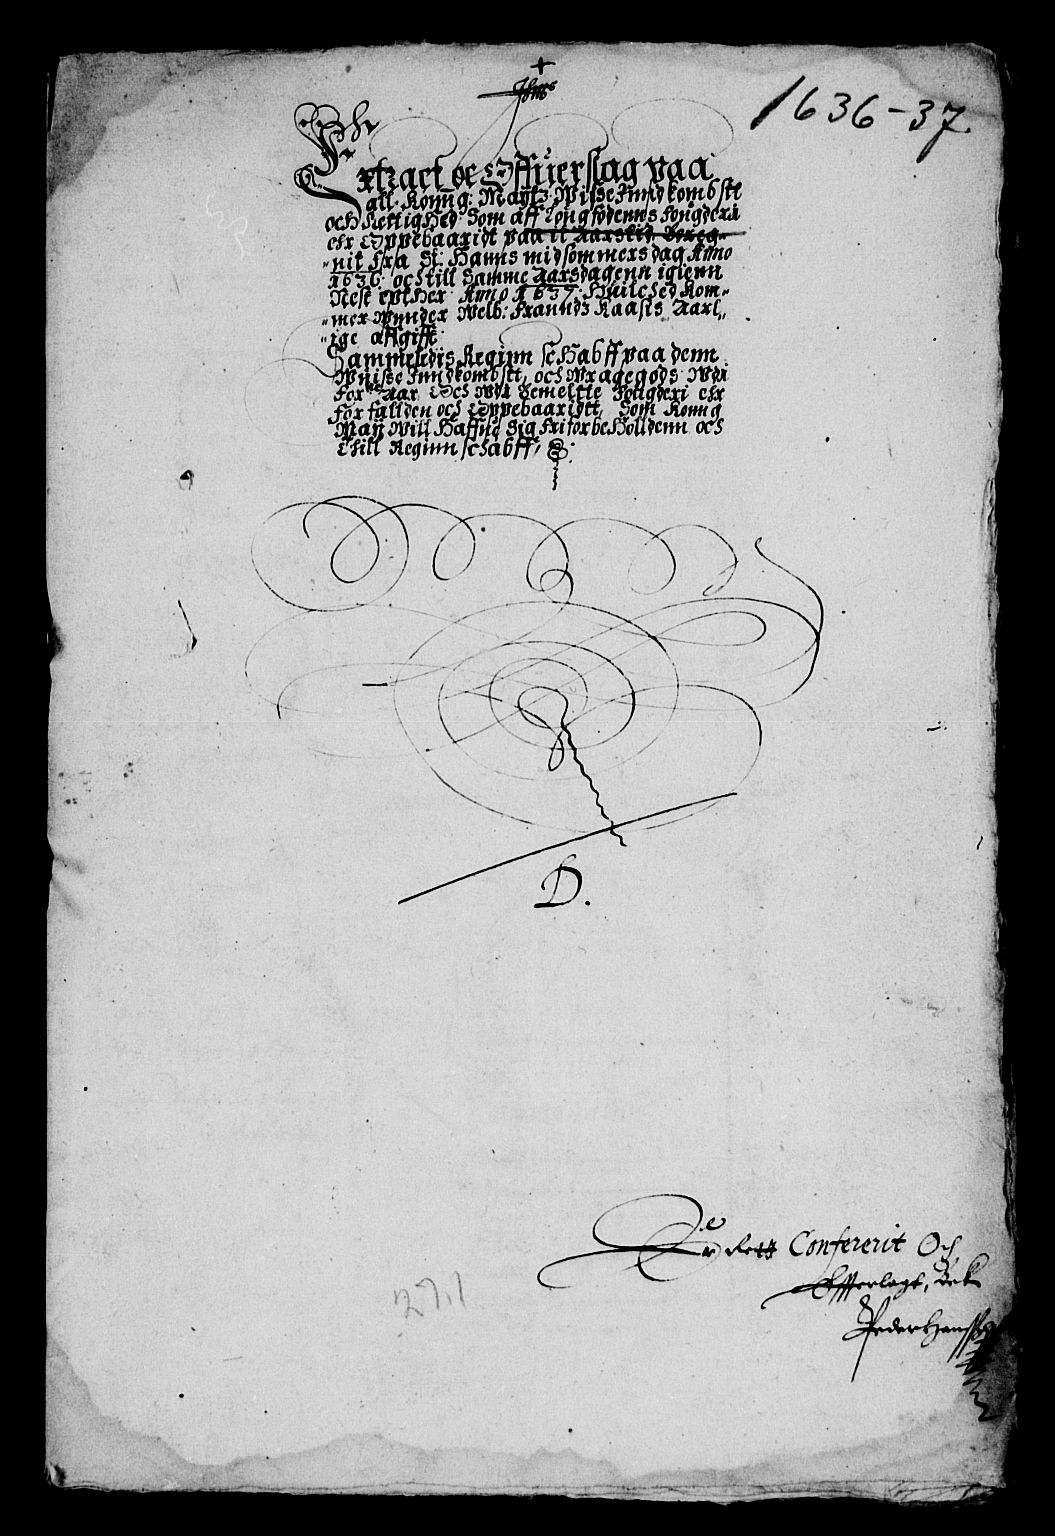 1636-37.
Jhesus
Extract oc Offuerslag paa
all Konng: Maytz: Wisse Inndkombste
och Rettighed Som aff Longsødenns fougderi
ehr Oppebaaridt paa it Aarstid Bereg-
nit fra St: Hanns midsommers dag Anno
1636. och till Samme Aarsdagenn igienn
Nest epther Anno 1637: Huilched kom-
mer wnnder Welb: Franndz Kaasis Aarl-
ige affgifft
Sammeledis Reginschabff paa denn
Wuisse Inndkombste, och wragegods, wdi
for:ne Aar Och wdi bemelte fougderi ehr
forfallden och Oppebaaridtt, Som Konng
May: Will Haffue Sig fri forbeholldenn och
Thill Reginnschabff,
D.
Er Rett Confererit Och
Offuerlagt, Bek.
Peder Hanssøn